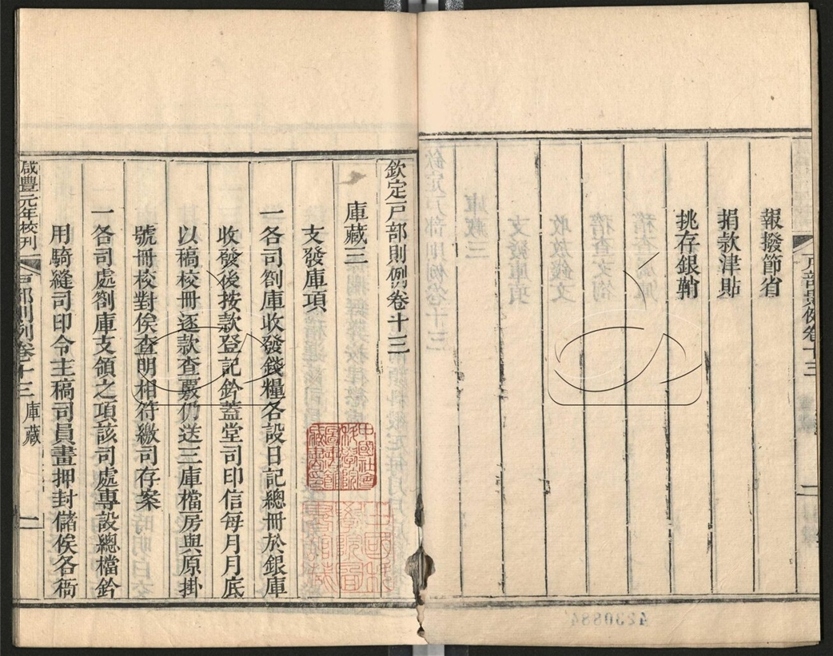 報撥節省
捐款津貼
挑存銀鞘
欽定戶部則例卷十三
庫藏三
支發庫項
一各司劄庫收發錢糧各設日記總冊於銀庫
收發後按款登記鈐蓋堂司印信每月月底
以稿校冊逐款查覈仍送三庫檔房與原掛
號冊校對俟查明相符繳司存案
一各司處劄庫支領之項該司處專設總檔鈐
用騎縫司印令主稿司員畫押封儲俟各衙
咸豐元年校刊
戶部則例卷十三 庫藏 一
4230884